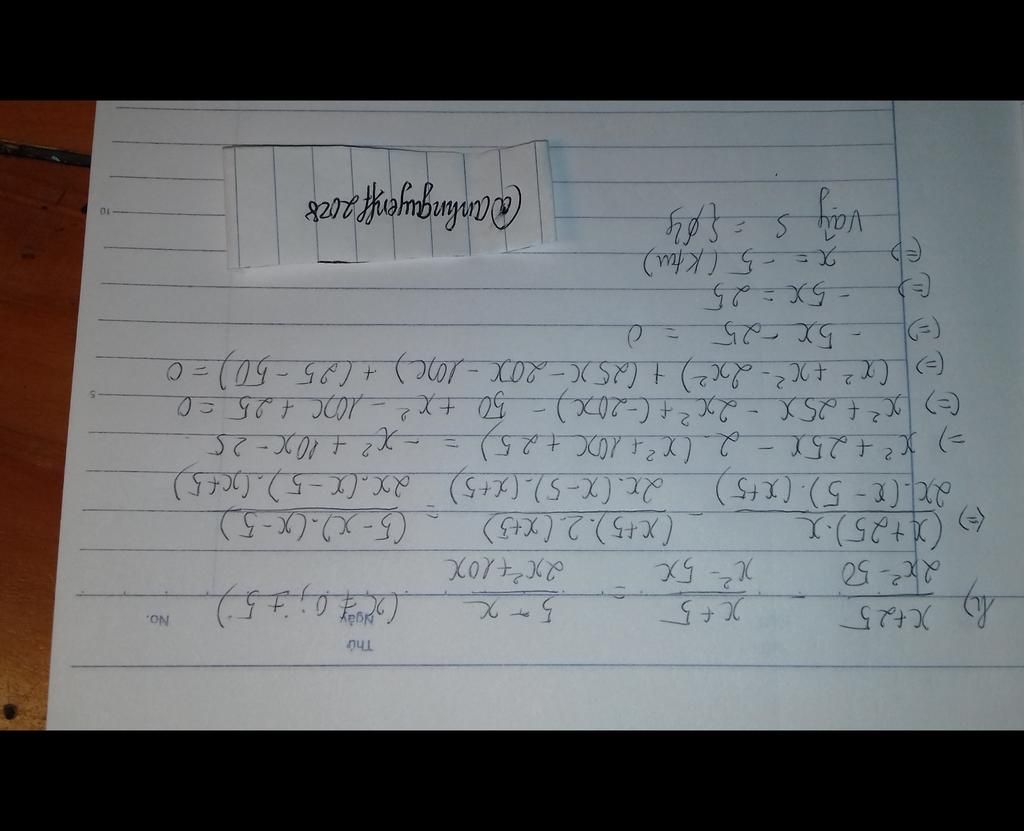 Thứ
Ngày No.
h) \frac{x+25}{2x²-50} - \frac{x+5}{x²-5x} = \frac{5-x}{2x²+10x} (x ≠ 0; ± 5)
(=) \frac{(x+25).x}{2x.(x-5).(x+5)} - \frac{(x+5).2.(x+5)}{2x.(x-5).(x+5)} = \frac{(5-x).(x-5)}{2x.(x-5).(x+5)}
=) x²+25x - 2.(x²+10x+25) = -x²+10x-25
(=) x²+25x - 2x²+(-20x) - 50 + x² - 10x + 25 = 0
5
(=) (x²+x²-2x²) + (25x-20x-10x) + (25-50) = 0
(=) -5x -25 = 0
(=) -5x = 25
(=) x = -5 (Ktm)
Vậy S = {∅}
10
@anhnguyenff2028